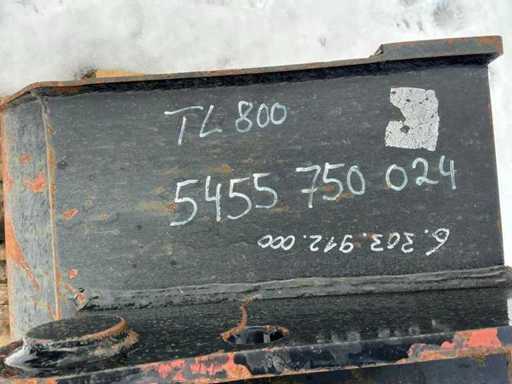 TL 800
5455 750 024
6.303.912.000